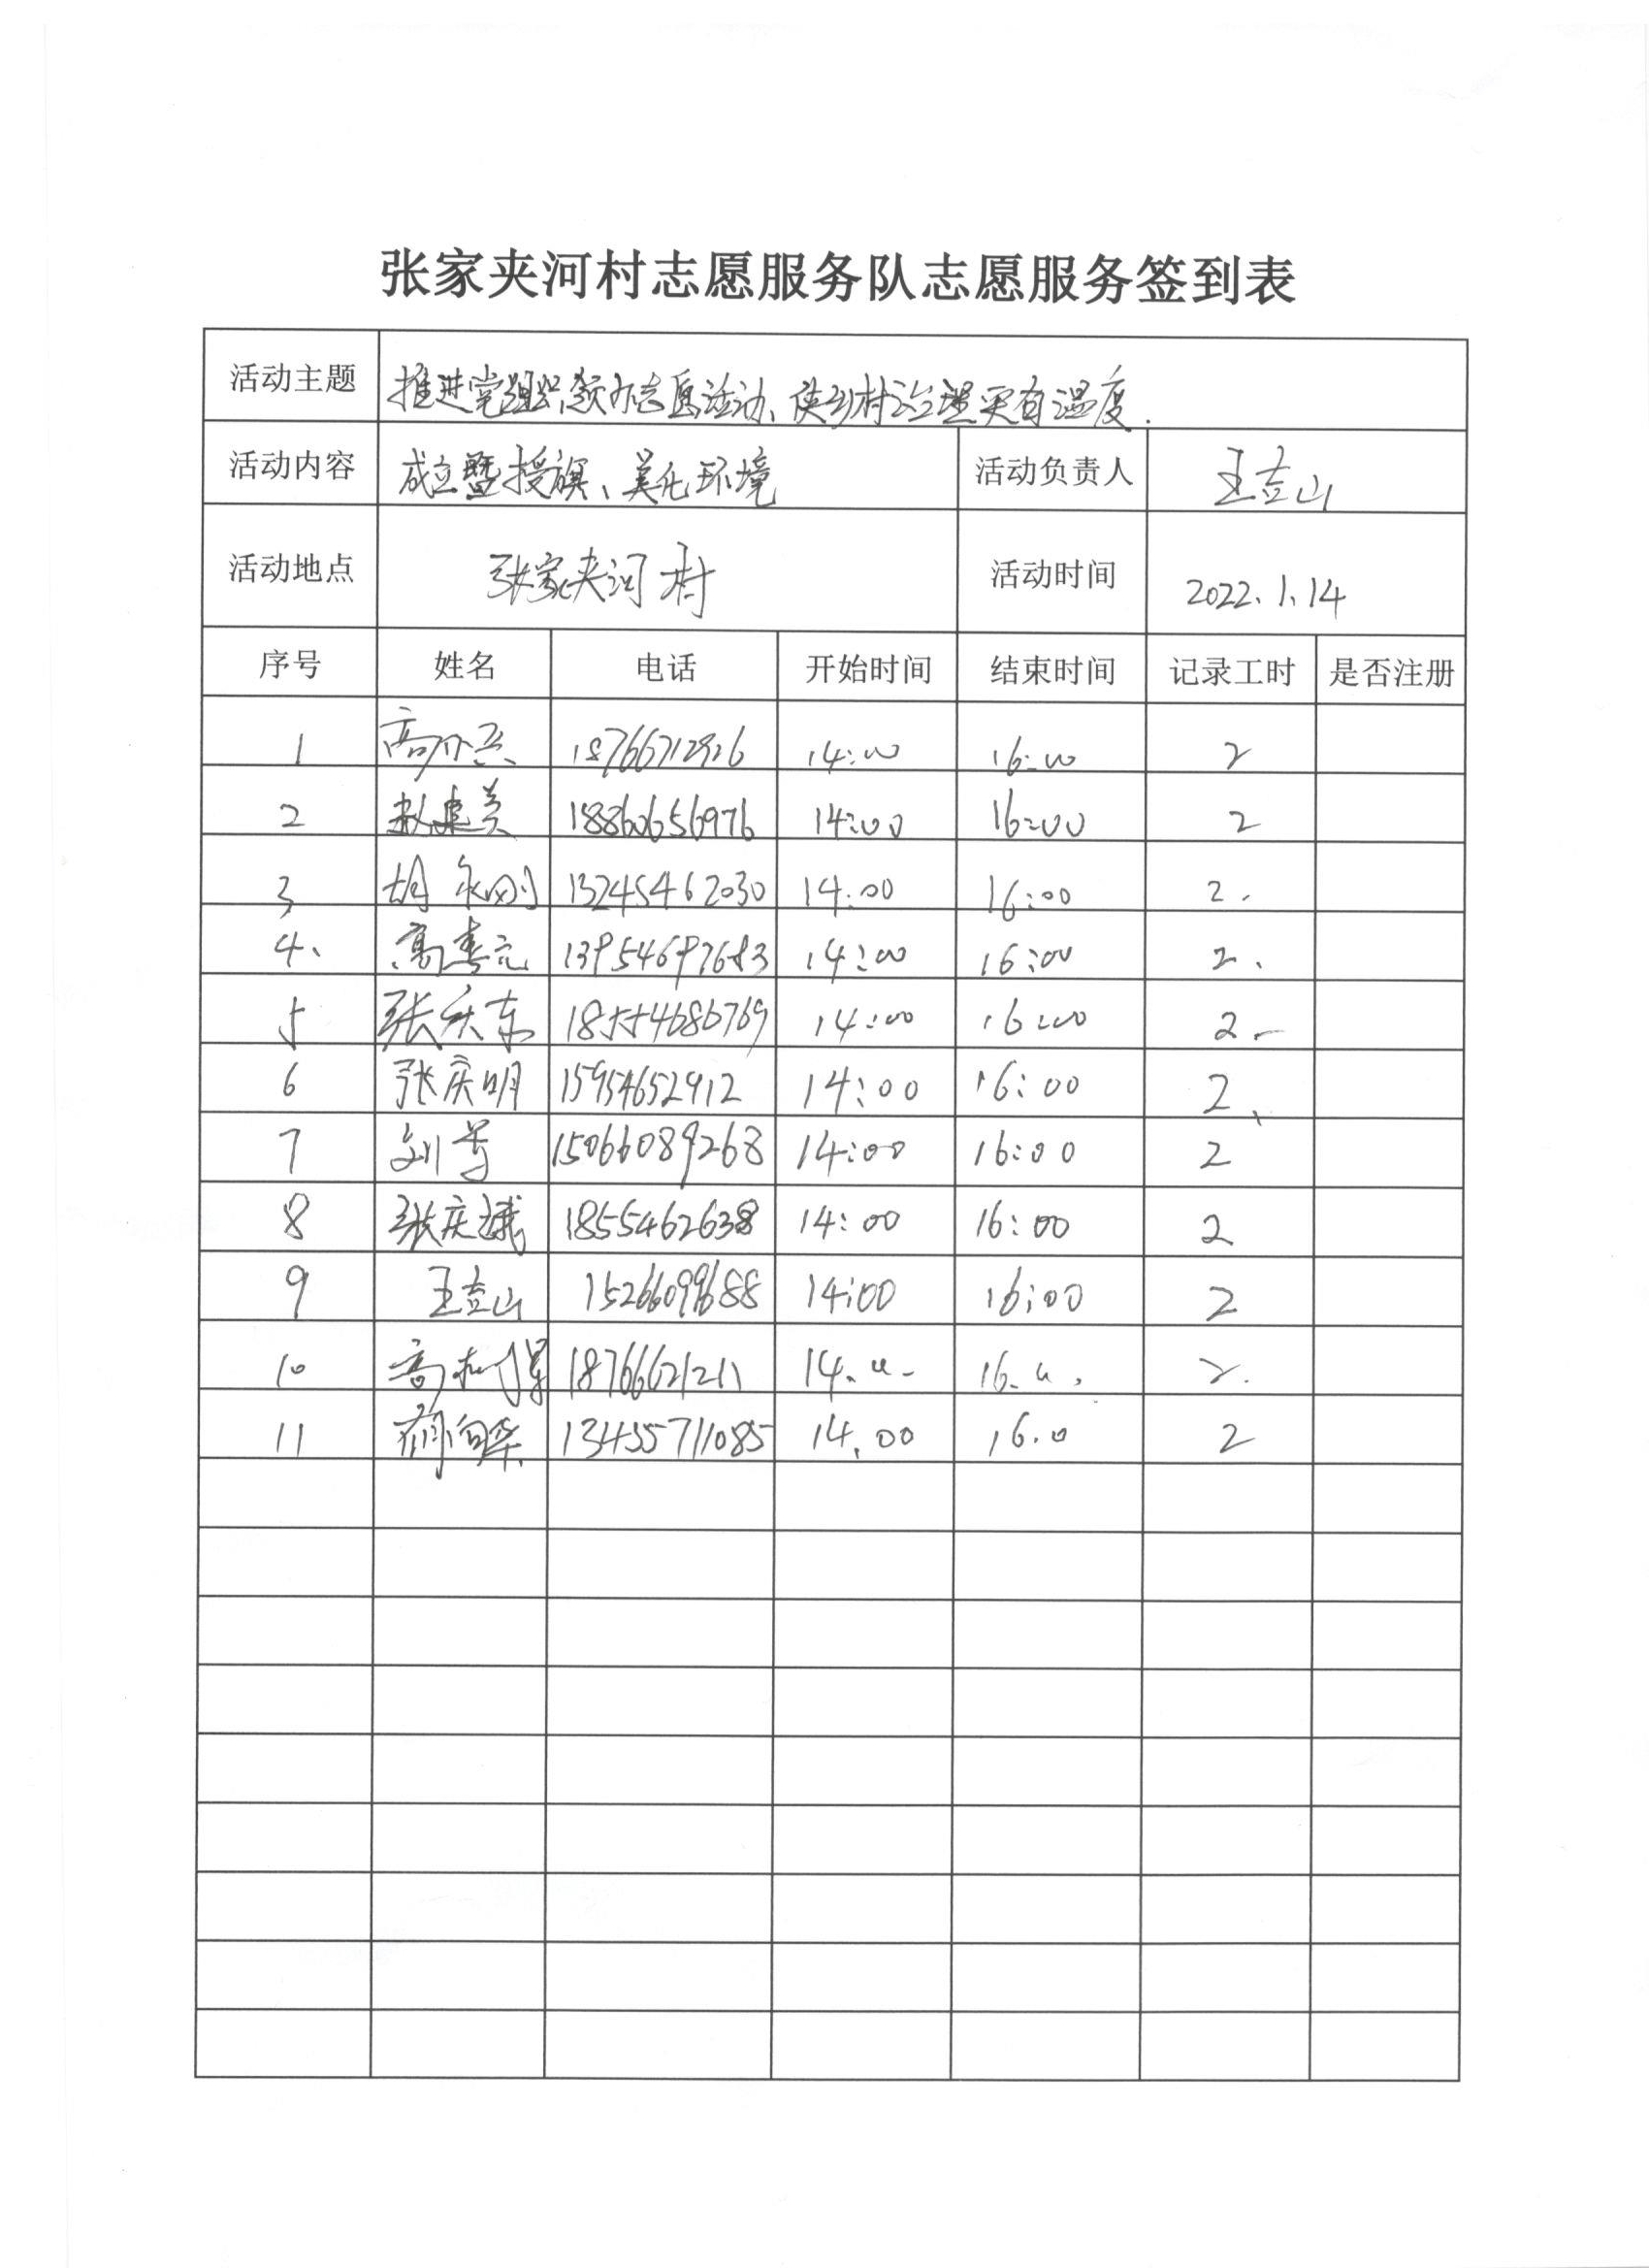 张家夹河村志愿服务队志愿服务签到表
活动主题 推进党组织领办志愿活动、使乡村治理更有温度.
活动内容 成立暨授旗、美化环境 活动负责人 王吉山
活动地点 张家夹河村 活动时间 2022.1.14
序号 姓名 电话 开始时间 结束时间 记录工时 是否注册
1 高 14:00 16:00 2
2 赵建美 18860656976 14:00 16:00 2
3 胡永刚 13245462030 14:00 16:00 2.
4、 高春元 14:00 16:00 2、
5 张庆东 18554686769 14:00 16:00 2
6 张庆明 15954652912 14:00 16:00 2、
7 刘 15066089268 14:00 16:00 2
8 张庆斌 1855462638 14:00 16:00 2
9 王吉山 15266099688 14:00 16:00 2
10 高 18766621211 14. 16. 2.
11 13455711085 14.00 16.0 2